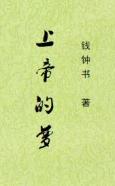 上帝的梦
钱钟书 著